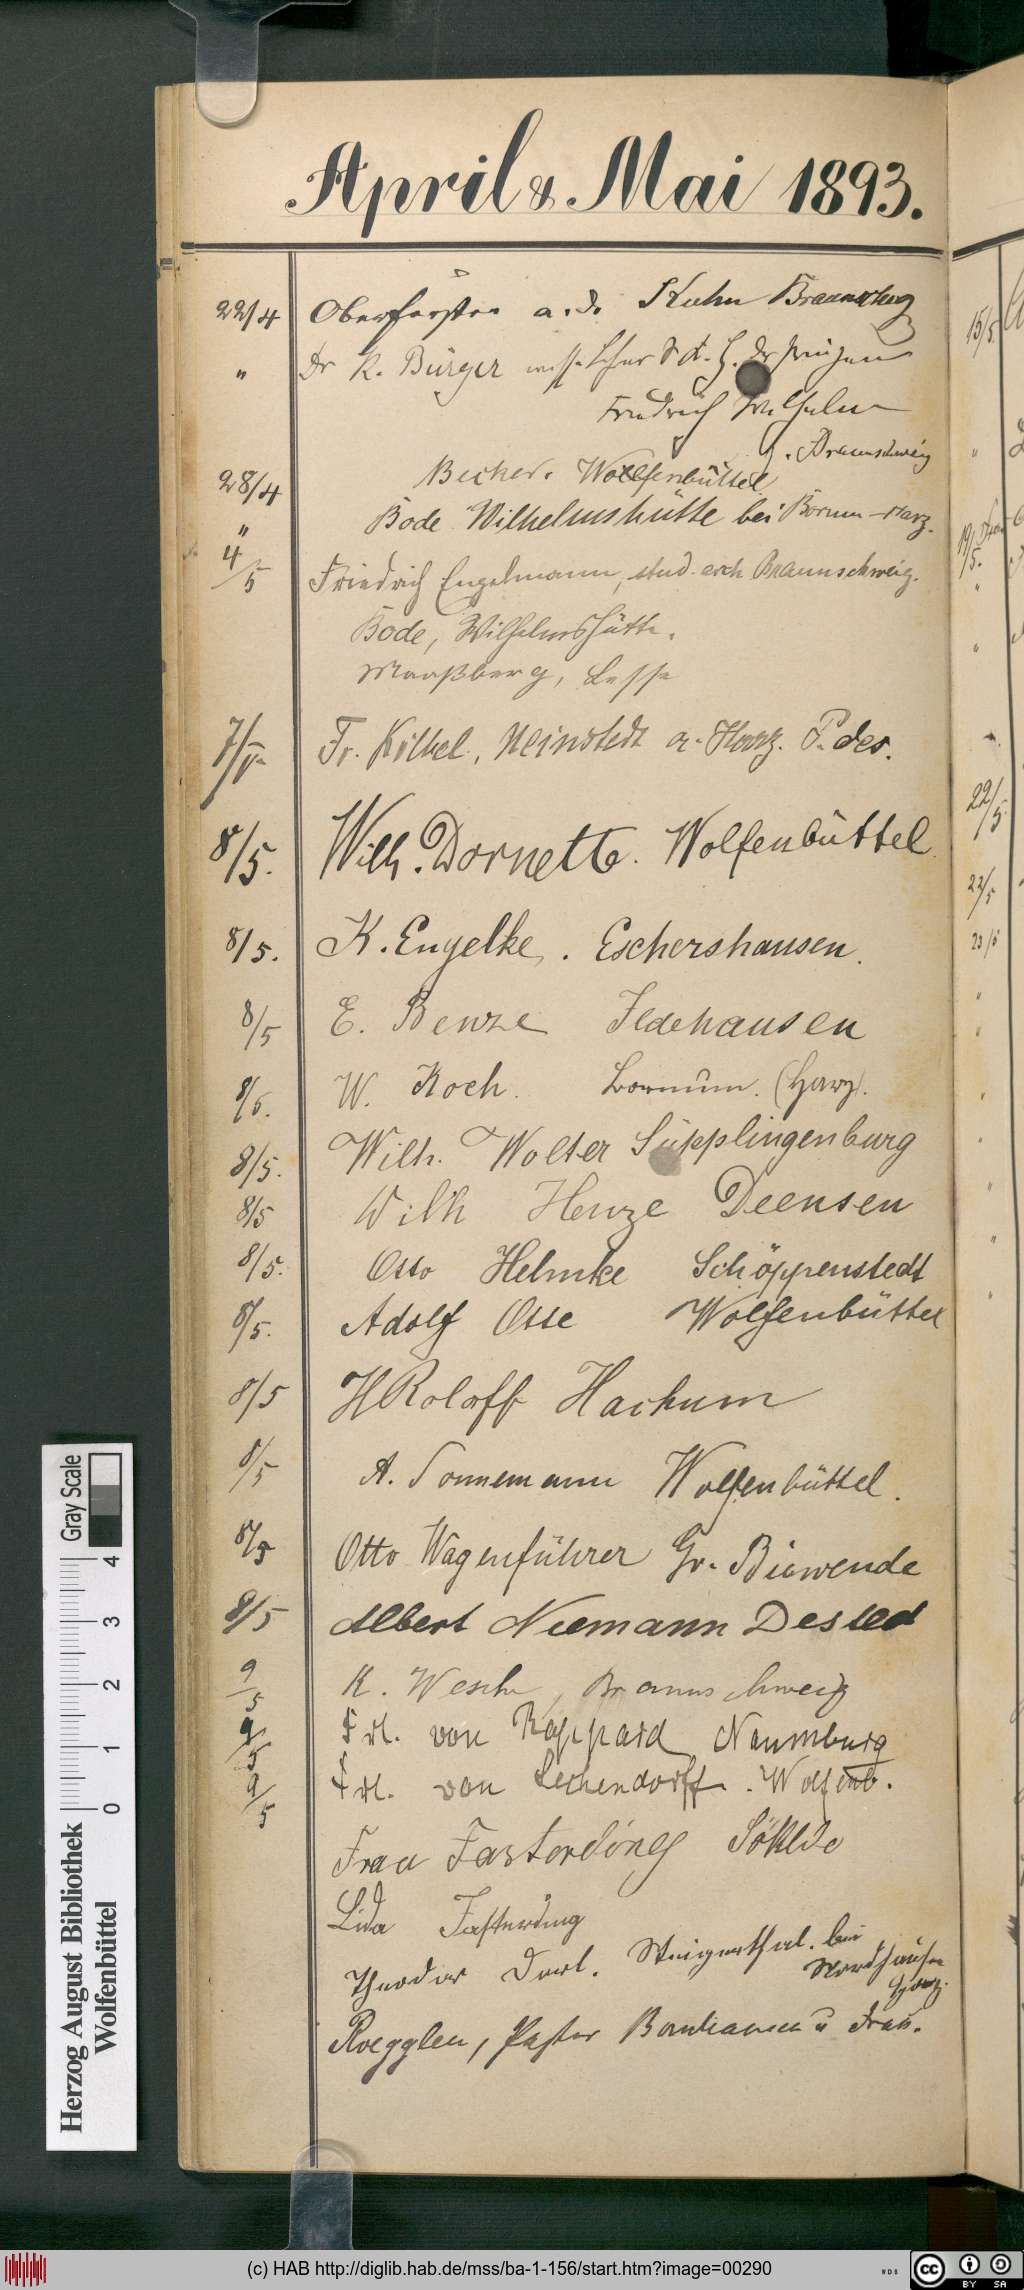 April & Mai 1893.
22/4 Oberförster a. D. Kuhn Braunschwg
" Dr K. Bürger
Friedrich Wilhelm
v. Braunschweig
28/4 Becker. Wolfenbüttel
" Bode Wilhelmshütte bei Bornum-Harz.
4/5 Friedrich Engelmann, stud. arch Braunschweig.
Bode, Wilhelmshütte.
Maaßberg, Lesse
7/5 Fr. Neinstedt a. Harz.
8/5. Wilh. Dornette. Wolfenbüttel
8/5. K. Engelke. Eschershausen.
8/5 E. Benze Ildehausen
8/5. W. Koch. Bornum. (Harz).
8/5. Wilh. Wolter Süpplingenburg
8/5 Wilh Henze Deensen
8/5. Otto Helmke Schöppenstedt
8/5. Adolf Osse Wolfenbüttel
8/5 H Roloff Hachum
8/5 A. Sonnemann Wolfenbüttel.
8/5 Otto Wagenführer Gr. Biewende
8/5 Albert Niemann Destedt
9/5 K. Wesche, Braunschweig
9/5 Frl. von Rappard Naumburg
9/5 Frl. von Lechendorff. Wolfenb.
Frau Fasterding Söhlde
Lida Fasterding
Theodor Steigerthal. bei
Nordhausen
Harz.
Pastor u Frau.
15/5
"
19/5.
"
"
22/5
22/5
23/5
Gray Scale
0 1 2 3 4
Herzog August Bibliothek
Wolfenbüttel
(c) HAB http://diglib.hab.de/mss/ba-1-156/start.htm?image=00290
WDB
CC BY SA